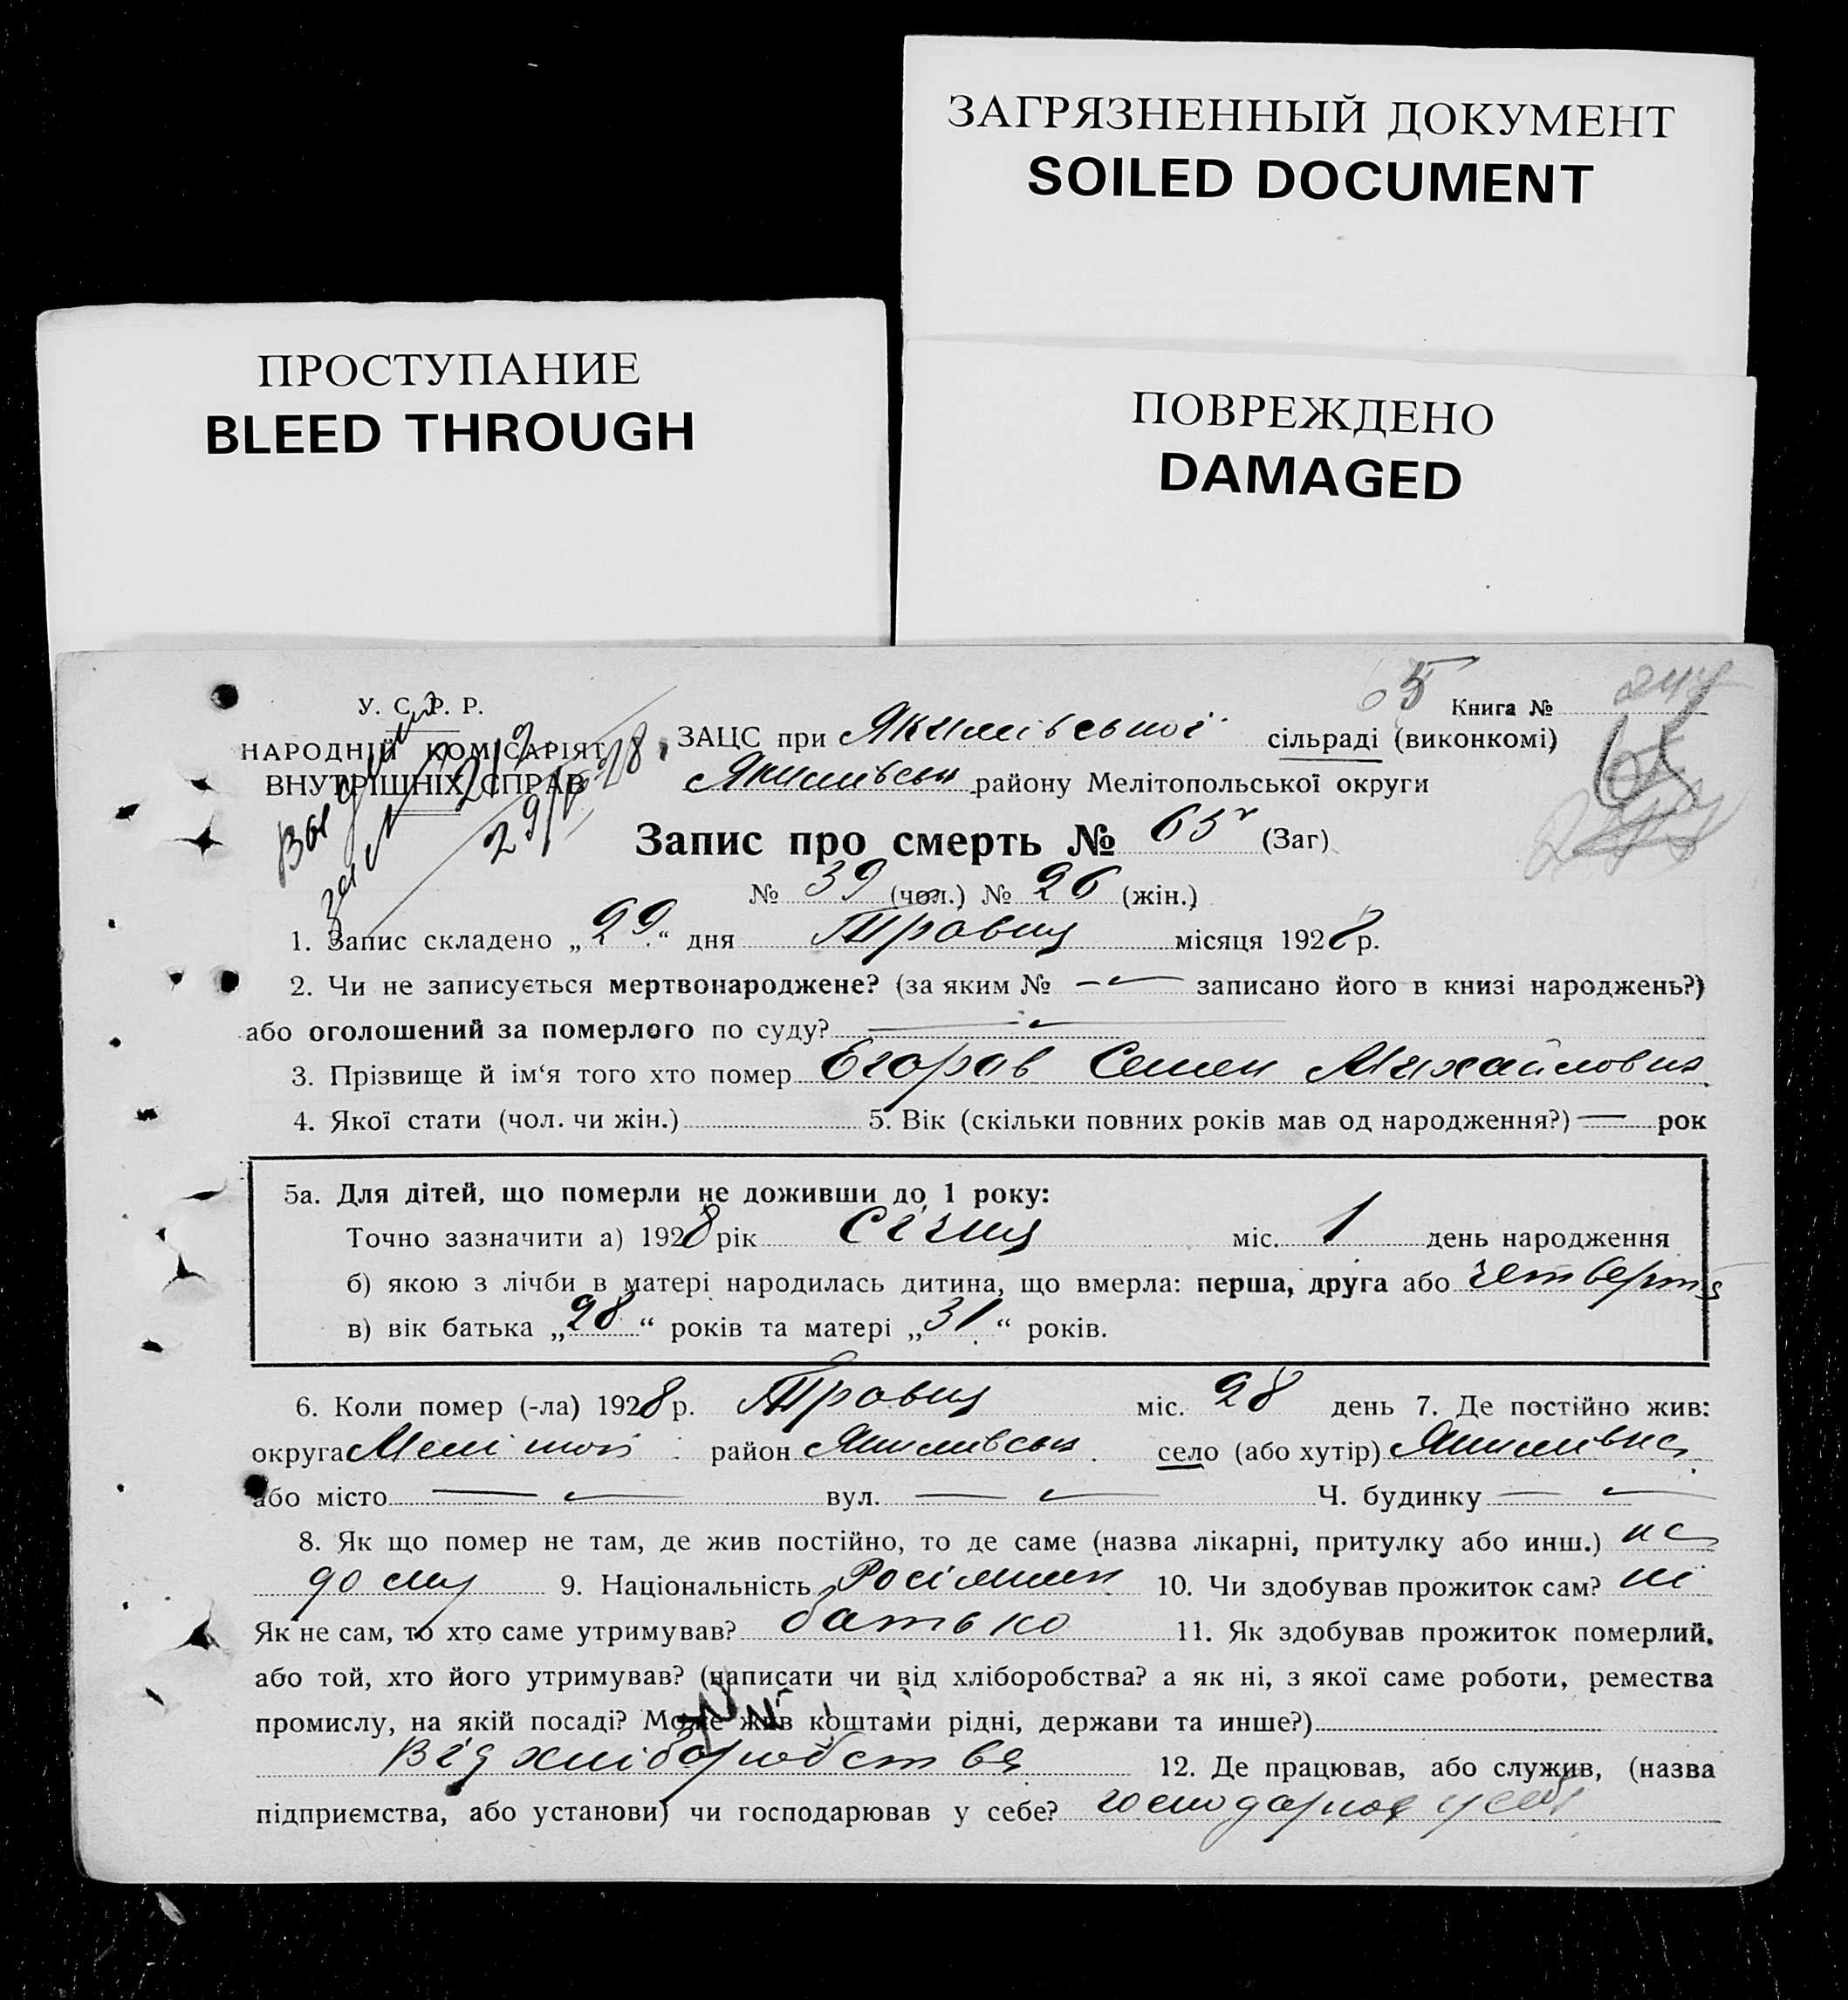 ЗАГРЯЗНЕННЫЙ ДОКУМЕНТ
SOILED DOCUMENT
ПРОСТУПАНИЕ
BLEED THROUGH
ПОВРЕЖДЕНО
DAMAGED
У. С. Р. Р.
НАРОДНІЙ КОМІСАРІЯТ
ВНУТРІШНІХ СПРАВ
65 Книга №
65
ЗАЦС при Якимівської сільраді (виконкомі)
Якимівськ району Мелітопольської округи
Запис про смерть № 65 (Заг)
№ 39 (чол.) № 26 (жін.)
1. Запис складено „29“ дня Травня місяця 1928 р.
2. Чи не записується мертвонароджене? (за яким № — записано його в книзі народжень?)
або оголошений за померлого по суду? —
3. Прізвище й ім‘я того хто помер Егоров Семен Михайлович
4. Якої стати (чол. чи жін.) 5. Вік (скільки повних років мав од народження?) — рок
5а. Для дітей, що померли не доживши до 1 року:
Точно зазначити а) 1928 рік Січня міс. 1 день народження
б) якою з лічби в матері народилась дитина, що вмерла: перша, друга або четверта
в) вік батька „28“ років та матері „31“ років.
6. Коли помер (-ла) 1928 р. Травня міс. 28 день 7. Де постійно жив:
округа Меліпол район Якимівськ село (або хутір) Якимівка
або місто — вул. — Ч. будинку —
8. Як що помер не там, де жив постійно, то де саме (назва лікарні, притулку або инш.) на
дому 9. Національність Росіянин 10. Чи здобував прожиток сам? ні
Як не сам, то хто саме утримував? батько 11. Як здобував прожиток померлий,
або той, хто його утримував? (написати чи від хліборобства? а як ні, з якої саме роботи, ремества
промислу, на якій посаді? Може жив коштами рідні, держави та инше?)
Від хліборобства 12. Де працював, або служив, (назва
підприємства, або установи) чи господарював у себе? господарював у себе